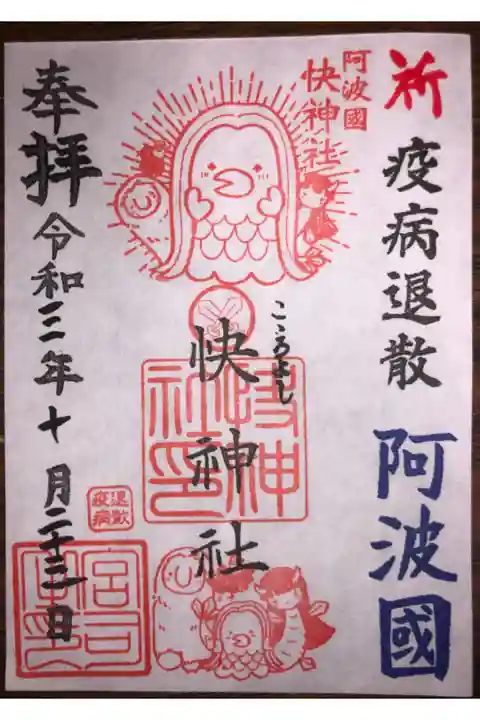 祈 疫病退散 阿波國
阿波國
快神社
こころよし
快神社
快神社印
疫病
退散
奉拝 令和三年十月二十三日
宮司之印